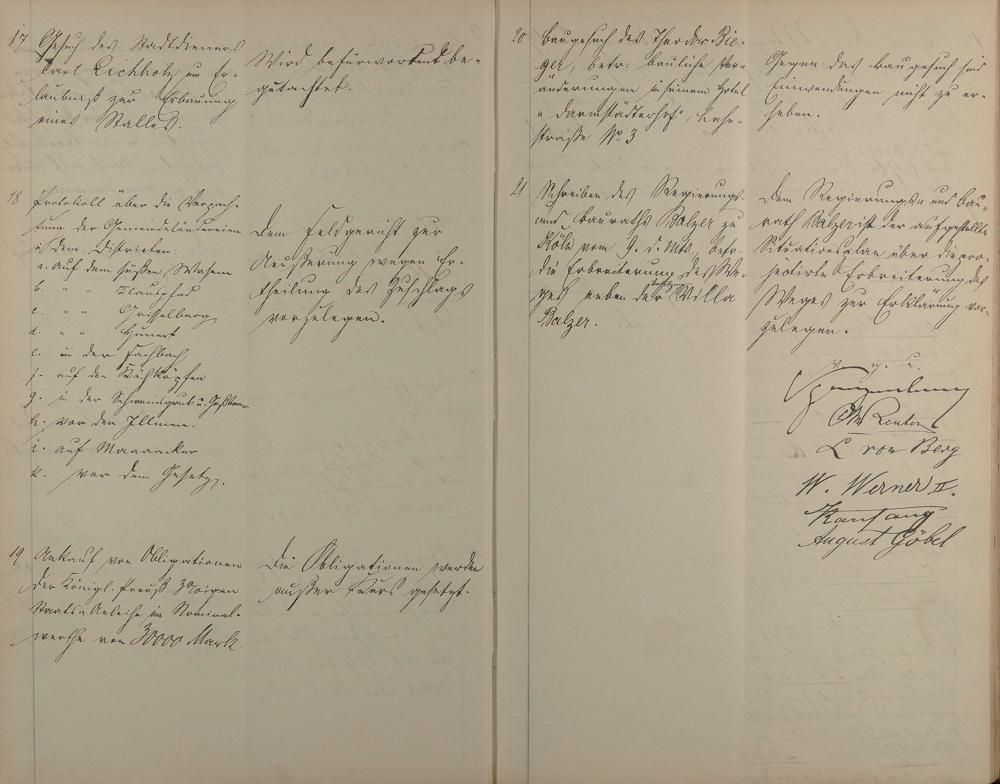 17 Gesuch des Stadtdieners
Carl Eichholz um Er-
laubniß zur Erbauung
eines Stalles.
Wird befürwortend be-
gutachtet.
18 Protokoll über die Verpach-
tung der Gemeindeländereien
in den Distrikten
a. Auf dem süßen Wasem
b. " " Clauspfad
c. " " Geisselberg
d. " " Hunert
e. in der Fachbach
f. auf den Kühköpfen
g. in der Schweinsgrub u.
h. vor den Illmen.
i. auf Maaracker
k. vor dem Gesetz.
Dem Feldgericht zur
Aeußerung wegen Er-
theilung des Zuschlags
vorzulegen.
19 Ankauf von Obligationen
der Königl. Preuß. 3%igen
Staats-Anleihe im Nominal-
werthe von 30000 Mark.
Die Obligationen werden
außer Kurs gesetzt.
20 Baugesuch des Theodor Rie-
ger, betr. bauliche Ver-
änderungen in seinem Hotel
"Darmstädterhof", Lahn-
straße No 3
Gegen das Baugesuch sind
Einwendungen nicht zu er-
heben.
21 Schreiben des Regierungs-
und Bauraths Balzer zu
Köln vom 9. d. Mts. betr.
die Erbreiterung des We-
ges neben der Villa
Balzer.
Dem Regierungs- und Bau-
rath Balzer ist der aufgestellte
Situationsplan über die pro-
jectirte Erbreiterung des
Weges zur Erklärung vor-
zulegen.
v. g. u.
L von Berg
W. Werner II.
August Göbel